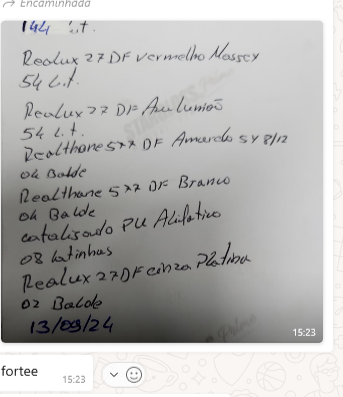 Encaminhada
144 L.t.
Realux 27 DF vermelho Massey
54 L.t.
Realux 27 DF Azul
54 L.t.
Realthane 5x7 DF Amarelo 5Y 8/12
04 Balde
Realthane 5x7 DF Branco
04 Balde
catalisado PU Alifatico
08 Latinhas
Realux 27 DF cinza Platina
02 Balde
13/09/24
15:23
fortee
15:23